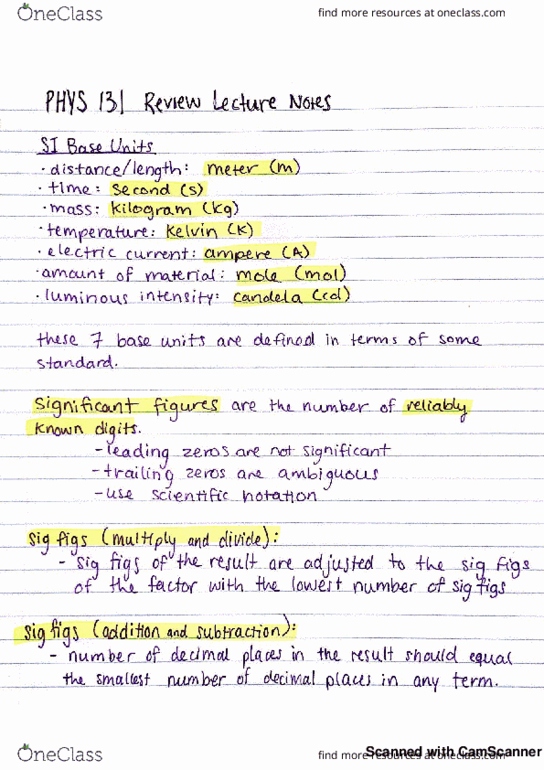 OneClass
find more resources at oneclass.com
PHYS 131 Review Lecture Notes
SI Base Units
· distance/length: meter (m)
· time: second (s)
· mass: kilogram (kg)
· temperature: Kelvin (K)
· electric current: ampere (A)
· amount of material: mole (mol)
· luminous intensity: candela (cd)
these 7 base units are defined in terms of some
standard.
significant figures are the number of reliably
known digits.
- leading zeros are not significant
- trailing zeros are ambiguous
- use scientific notation
sig figs (multiply and divide):
- sig figs of the result are adjusted to the sig figs
of the factor with the lowest number of sig figs
sig figs (addition and subtraction):
- number of decimal places in the result should equal
the smallest number of decimal places in any term.
OneClass
find more resources at oneclass.com
Scanned with CamScanner